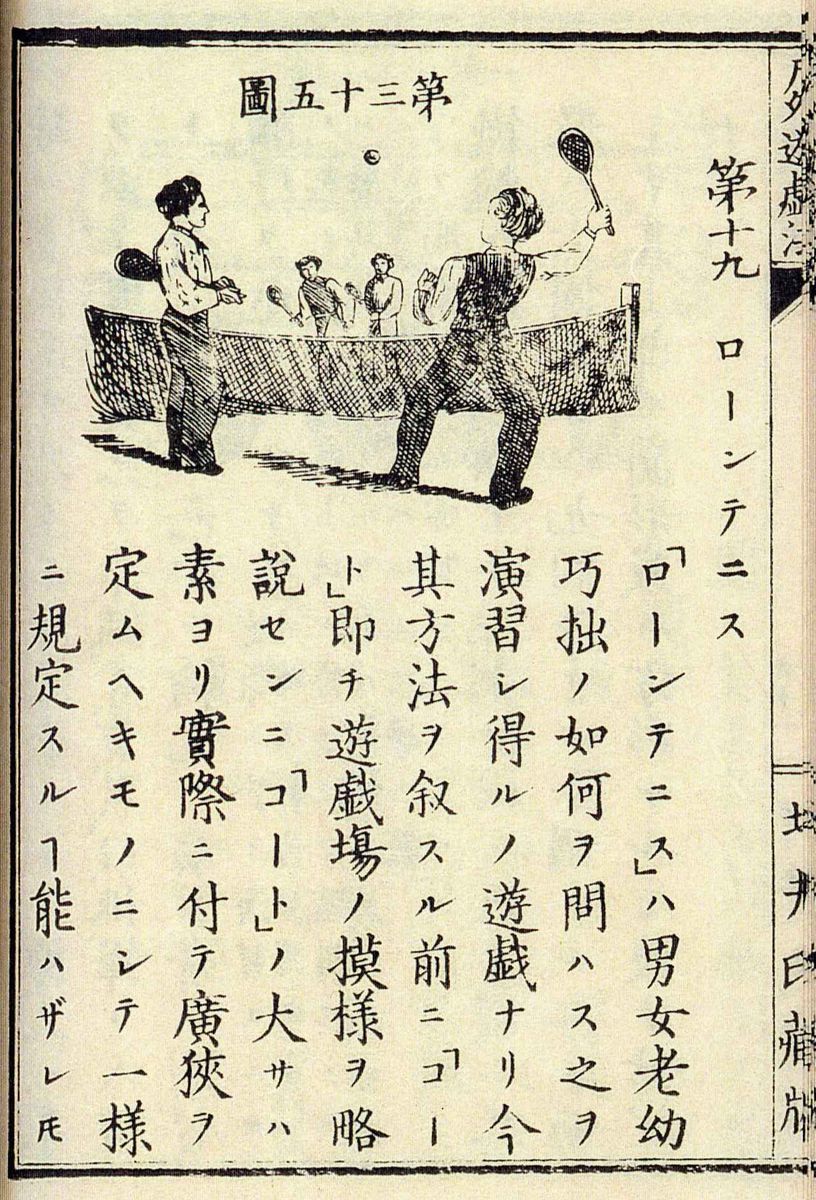 戶外遊戯法
第十九 ローンテニス
第三十五圖
「ローンテニス」ハ男女老幼
巧拙ノ如何ヲ問ハス之ヲ
演習シ得ルノ遊戯ナリ今
其方法ヲ叙スル前ニ「コー
ト」即チ遊戯塲ノ摸樣ヲ略
說センニ「コート」ノ大サハ
素ヨリ實際ニ付テ廣狹ヲ
定ムヘキモノニシテ一樣
ニ規定スルヿ能ハザレ𪜈
井 藏